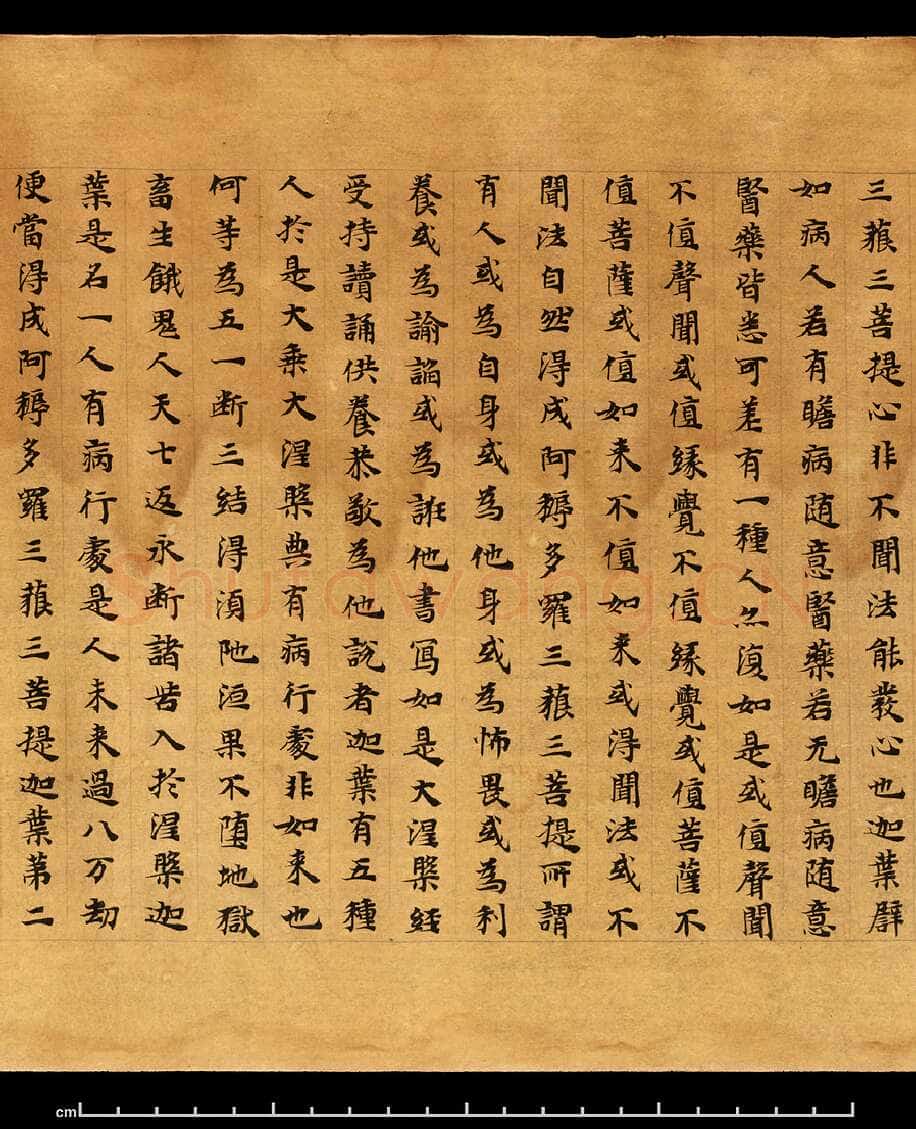 三藐三菩提心非不聞法能發心也迦葉辟
如病人若有瞻病随意醫藥若无瞻病随意
醫藥皆悉可差有一種人亦復如是或值聲聞
不值聲聞或值緣覺不值緣覺或值菩薩不
值菩薩或值如来不值如来或得聞法或不
聞法自然得成阿耨多羅三藐三菩提所謂
有人或為自身或為他身或為怖畏或為利
養或為諭諂或為誑他書寫如是大涅槃經
受持讀誦供養恭敬為他説者迦葉有五種
人於是大乘大涅槃典有病行處非如来也
何等為五一断三結得湏陁洹果不堕地獄
畜生餓鬼人天七返永断諸苦入於涅槃迦
葉是名一人有病行處是人未来過八万劫
便當得成阿耨多羅三藐三菩提迦葉第二
Shufawang.CN
cm